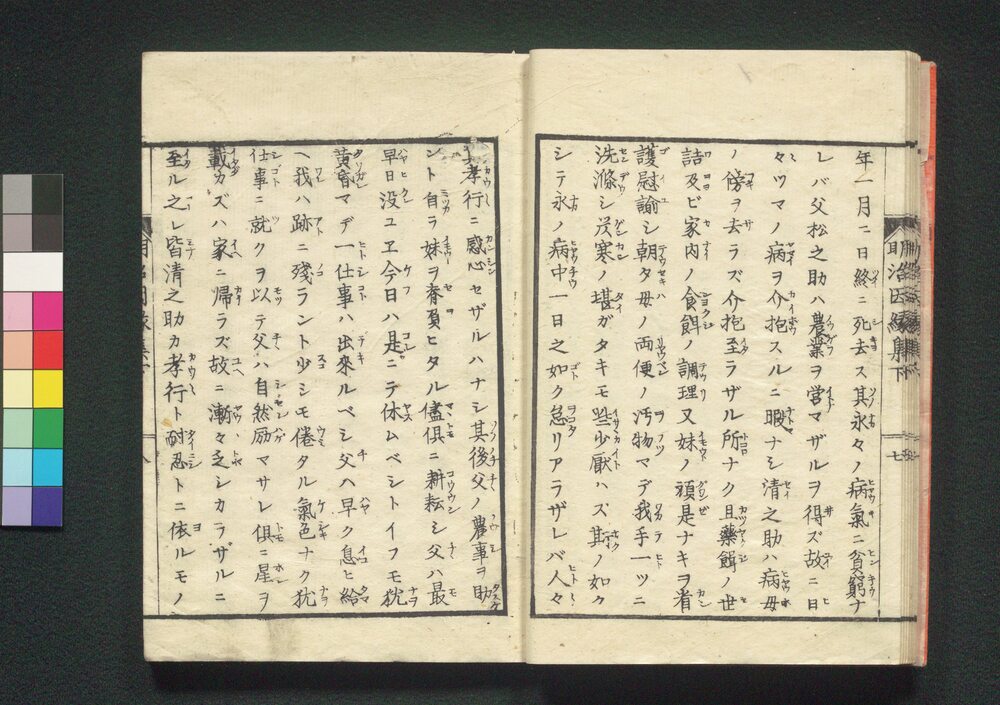 年一月二日終ニ死去ス其永々ノ病氣ニ貧窮ナ
レバ父松之助ハ農業ヲ営マザルヲ得ズ故ニ日
々ツマノ病ヲ介抱スルニ暇ナシ清之助ハ病母
ノ傍ヲ去ラズ介抱至ラザル所ナク且藥餌ノ世
話及ビ家内ノ食餌ノ調理又妹ノ頑是ナキヲ看
護慰諭シ朝タハ母ノ両便ノ汚物マデ我手一ツニ
洗滌シ茂寒ノ堪ガタキモ些少厭ハズ其ノ如ク
シテ永ノ病中一日之如ク怠リアラザレバ人々
其孝行ニ感心セザルハナシ其後父ノ農事ヲ助
ント自ヲ妹ヲ脊負ヒタル儘俱ニ耕耘シ父ハ最
早日没ユヱ今日ハ是ニテ休ムベシトイフモ犹
黄昏マデ一仕事ハ出來ルベシ父ハ早ク息ヒ給
ヘ我ハ跡ニ殘ラント少シモ倦タル氣色ナク犹
仕事ニ就クヲ以テ父ハ自然励マサレ俱ニ星ヲ
戴カズハ家ニ帰ラズ故ニ漸々乏シカラザルニ
至ル之レ皆清之助カ孝行ト耐忍トニ依ルモノ